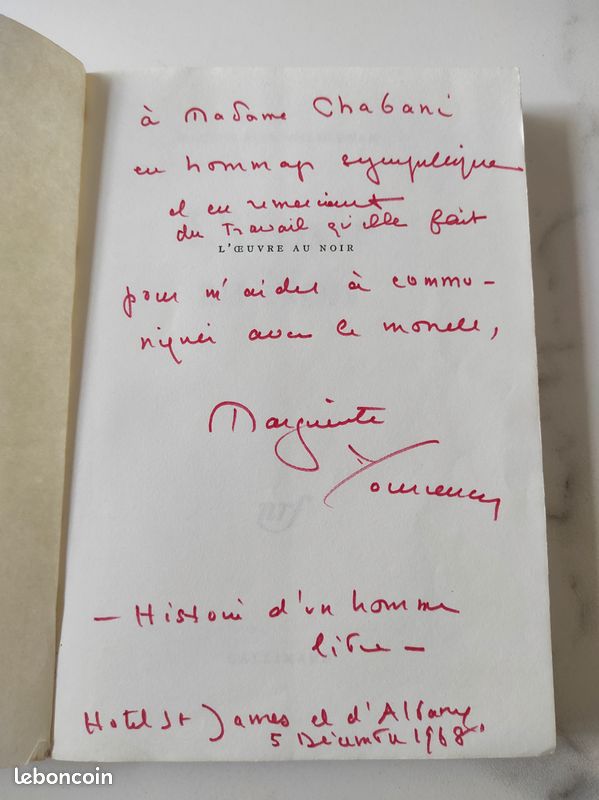 à Madame Chabani
en hommage sympathique
et en remerciement
du Travail qu'elle fait
L'ŒUVRE AU NOIR
pour m'aider à commu-
niquer avec le monde,
Marguerite
Yourcenar
— Histoire d'un homme
libre —
Hotel St James et d'Albany
5 Décembre 1968
leboncoin